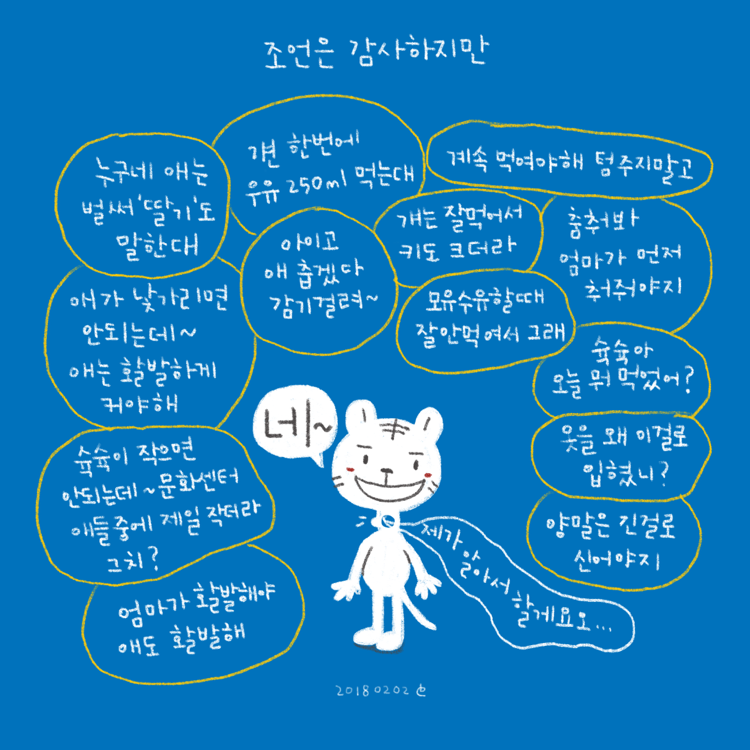 조언은 감사하지만
누구네 애는
벌써 '딸기'도
말한대
걘 한번에
우유 250ml 먹는대
계속 먹여야해 텀주지말고
걔는 잘먹어서
키도 크더라
춤춰봐
엄마가 먼저
춰줘야지
아이고
애 춥겠다
감기걸려~
애가 낯가리면
안되는데~
애는 활발하게
커야해
모유수유할때
잘안먹여서 그래
슉슉아
오늘 뭐 먹었어?
네~
옷을 왜 이걸로
입혔니?
슉슉이 작으면
안되는데~문화센터
애들중에 제일 작더라
그치?
양말은 긴걸로
신어야지
제가 알아서 할게요오...
엄마가 활발해야
애도 활발해
20180202